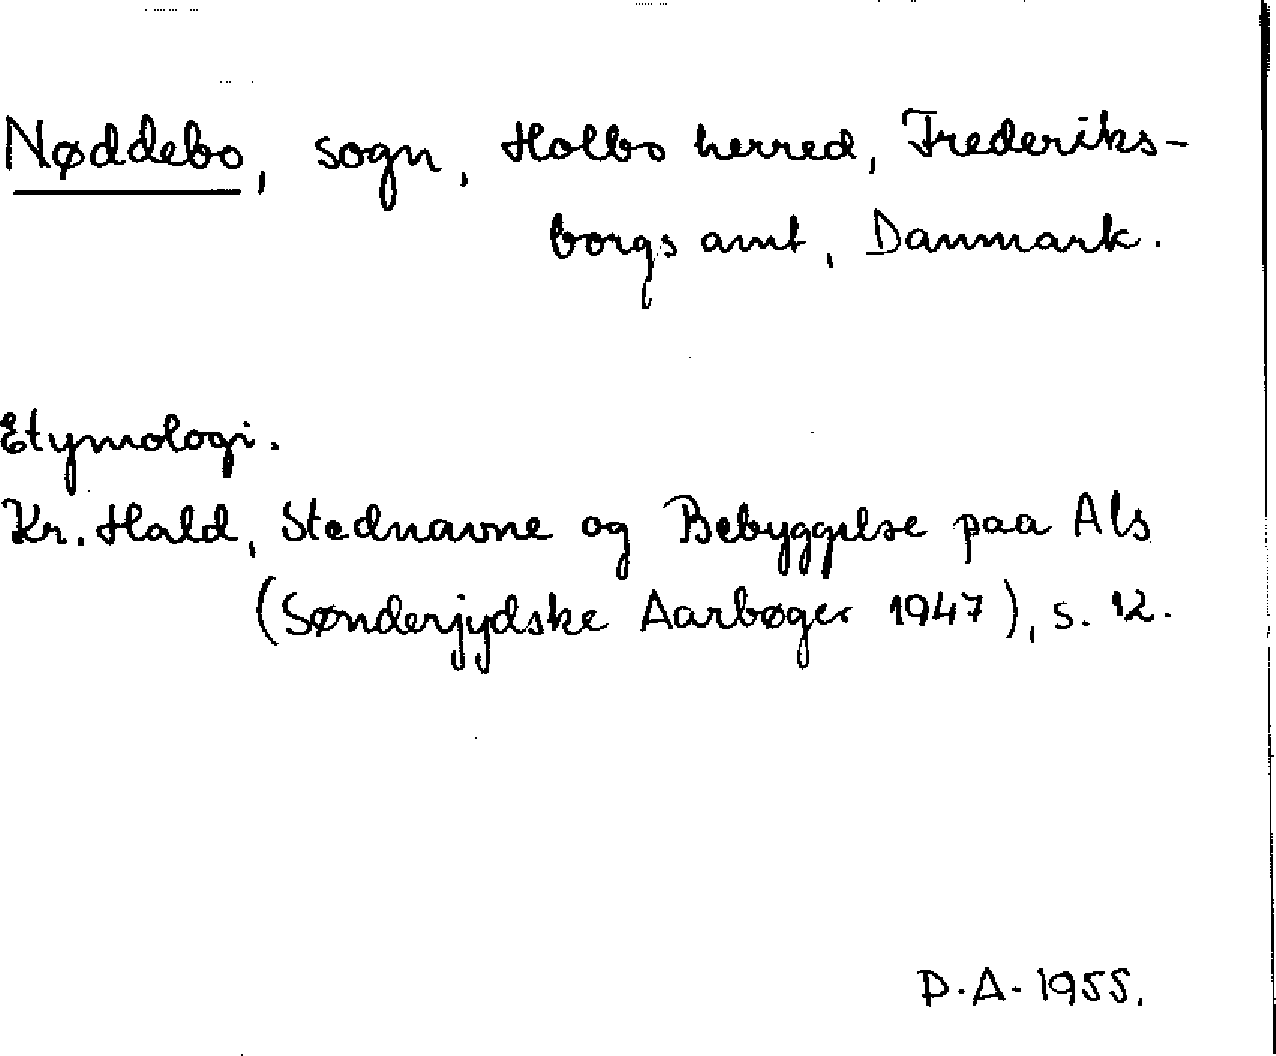 Nøddebo, sogn, Holbo herred, Frederiks-
borgs amt, Danmark.
Etymologi.
Kr. Hald, Stednavne og Bebyggelse paa Als
(Sønderjydske Aarbøger 1947), s. 12.
D.A. 1955.